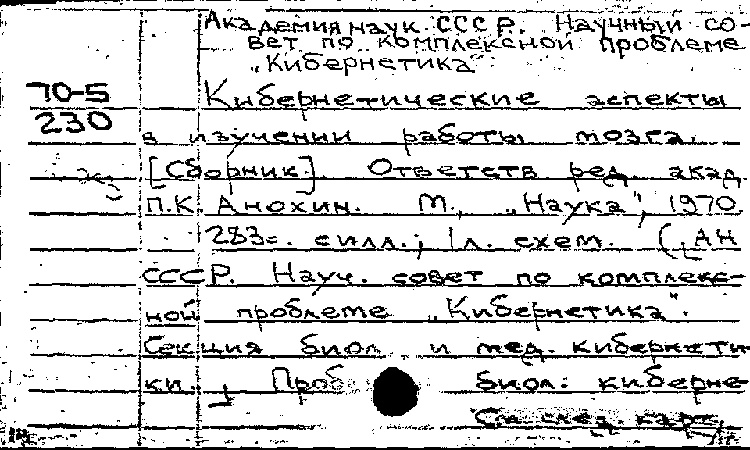 Академия наук СССР. Научный со-
вет по комплексной проблеме
„Кибернетика“
70-5
Кибернетические аспекты
230
в изучении работы мозга.
[Сборник]. Ответств ред. акад.
П.К. Анохин. М., „Наука“, 1970.
283с. с илл.; 1л. схем. (АН
СССР. Науч. совет по комплекс-
ной проблеме „Кибернетика“.
Секция биол. и мед. кибернети-
ки. Проб. биол. киберне-
См. след. карт.